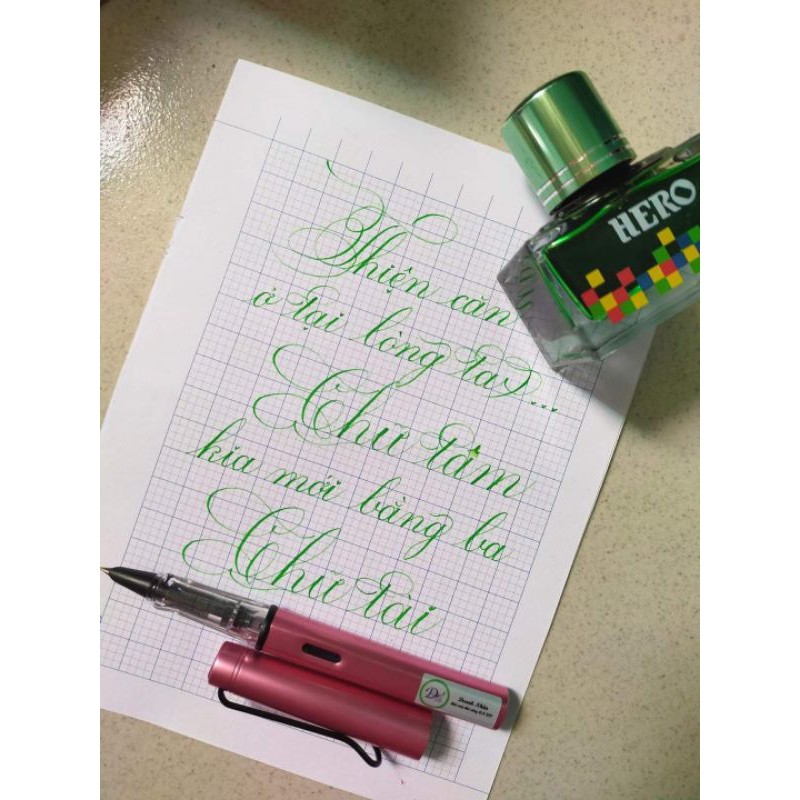 Thiện căn
ở tại lòng ta...
Chữ tâm
kia mới bằng ba
Chữ tài
HERO